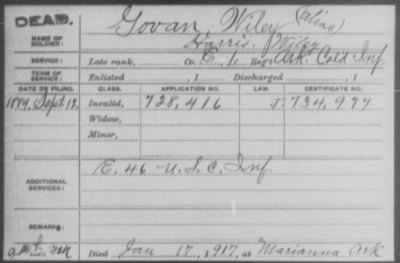 DEAD.
Govan, Wiley (alias)
NAME OF SOLDIER:
Harris, Wiley
SERVICE:
Late rank, Co. E, Reg't Ark. Cold Inf
TERM OF SERVICE:
Enlisted , 1 Discharged , 1
DATE OF FILING. CLASS. APPLICATION NO. LAW. CERTIFICATE NO.
1889, Sept. 13, Invalid, 728,416 J. 734,977
Widow,
Minor,
ADDITIONAL SERVICES:
E. 46 U.S.C. Inf
REMARKS:
Died Jan 17, 1917, at Marianna Ark